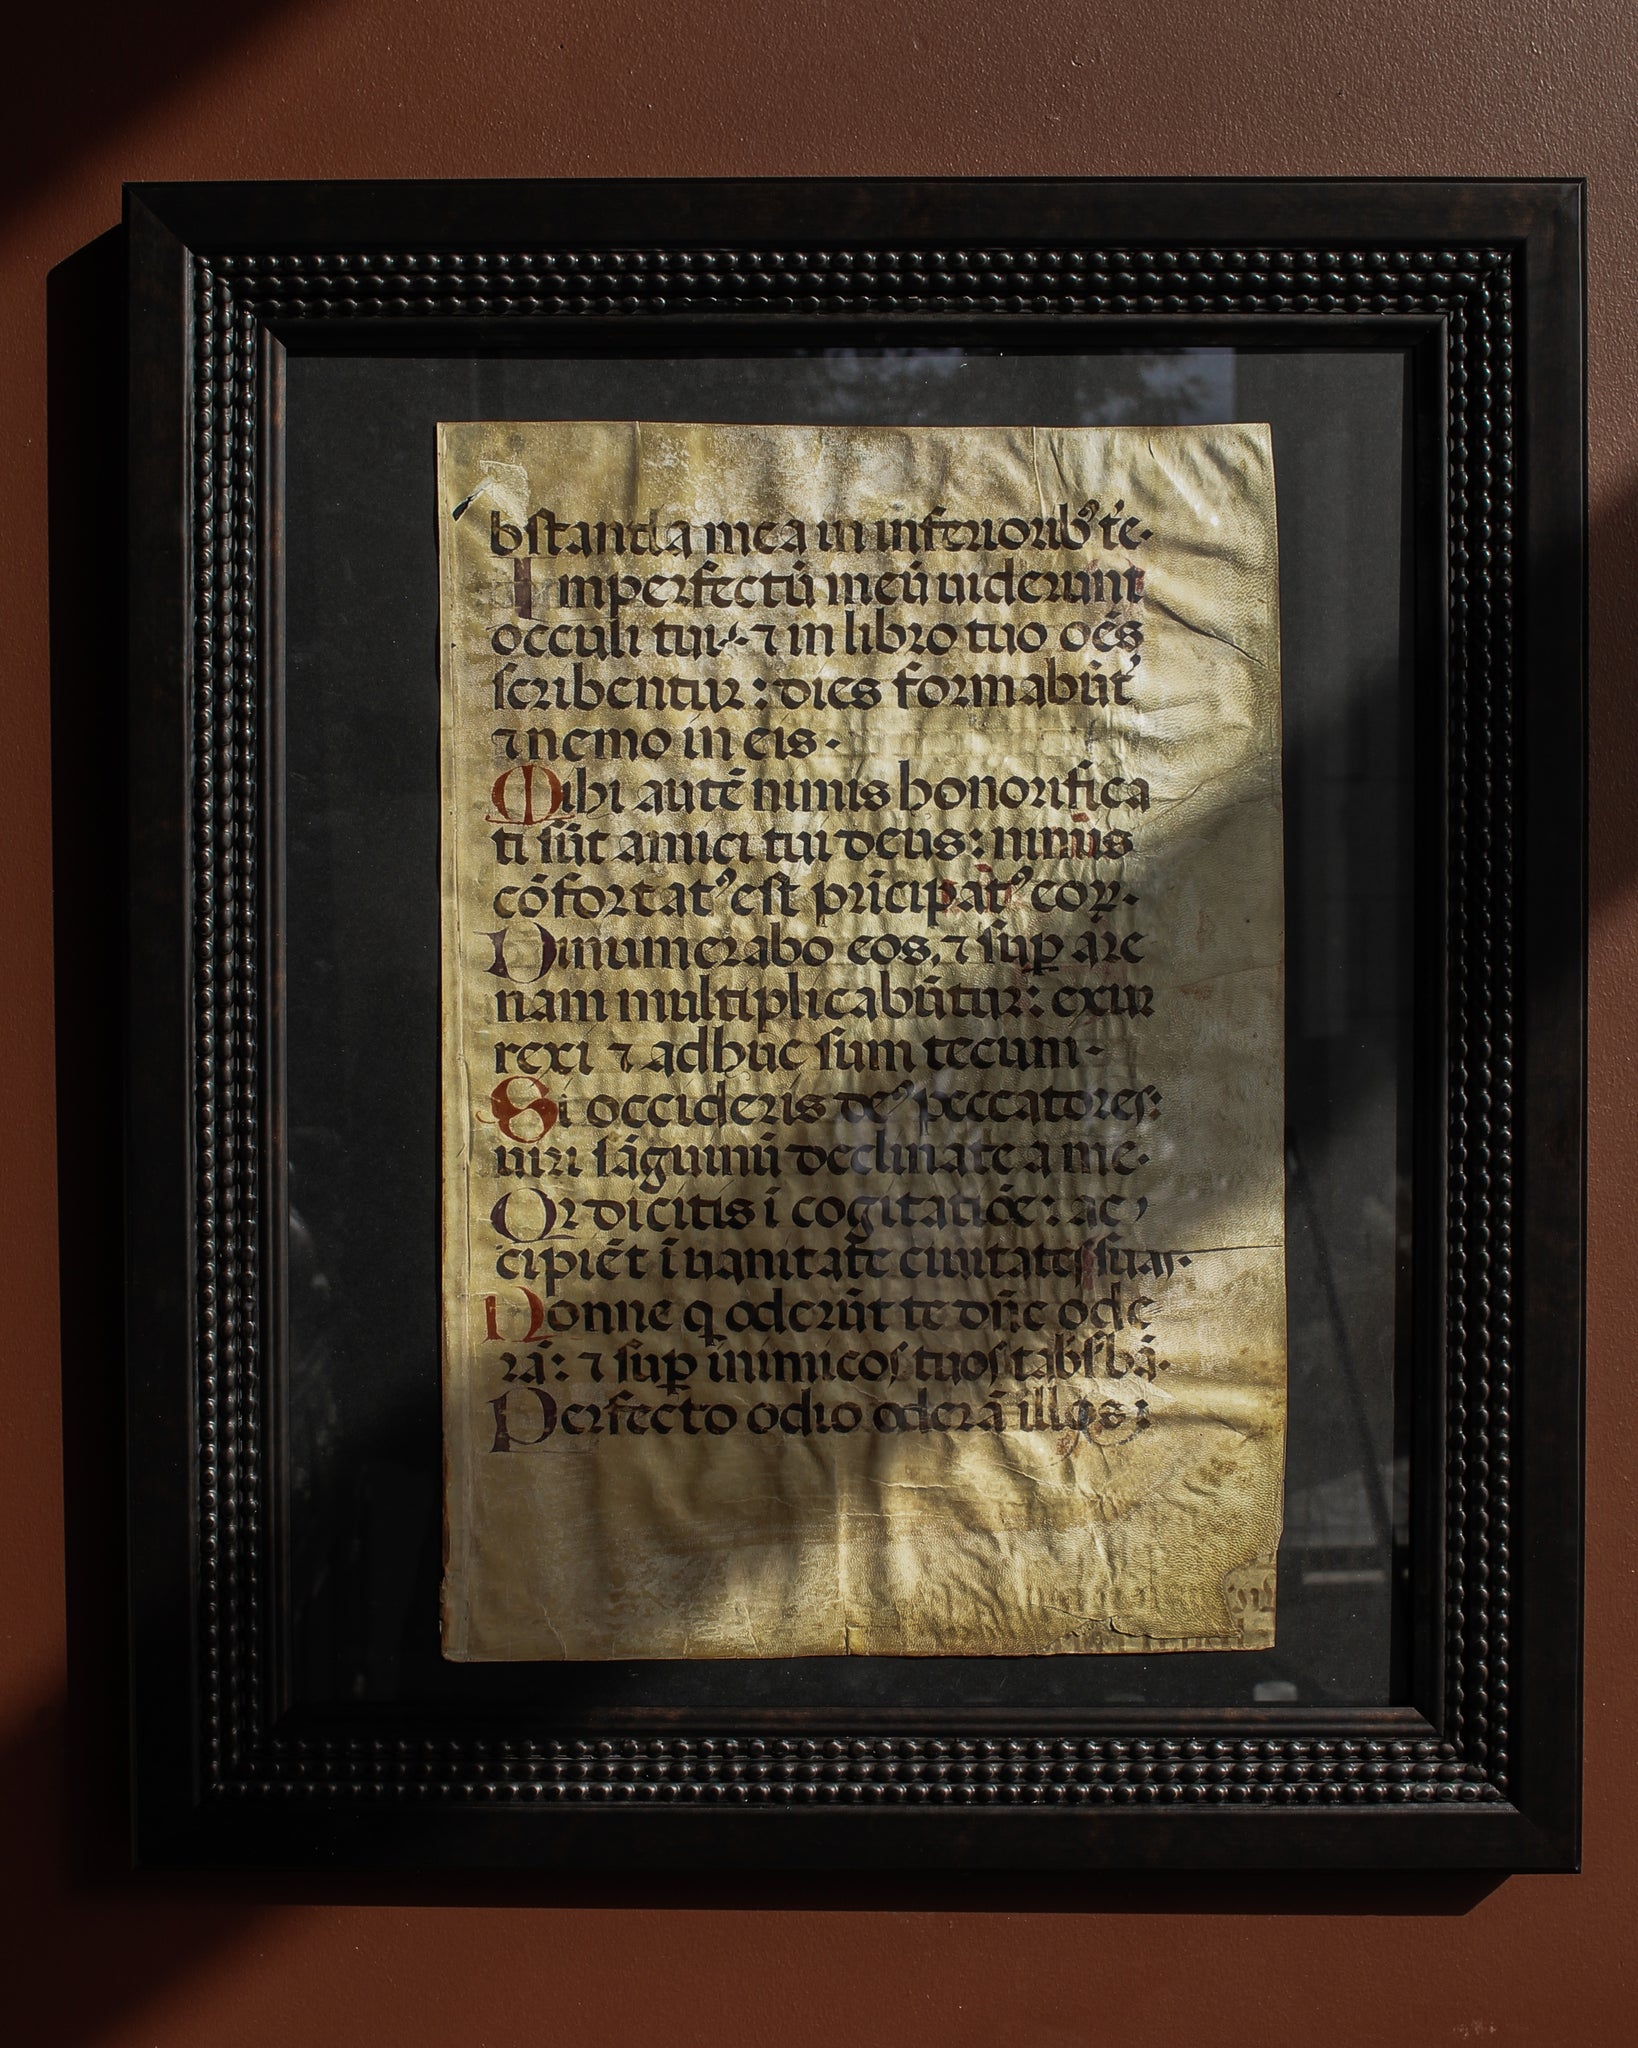 bstantia mea in inferiorib⁹ t̄e·
Imperfectū meū uiderunt
occuli tui·⁊ in libro tuo oēs
scribentur: dies formabūt᷑
⁊ nemo in eis·
Mihi autē nimis honorifica
ti sūt amici tui deus: nimis
cōfortat⁹ est pr̄icipat⁹ eoꝝ·
Dinumerabo eos, ⁊ sup̱ are
nam multiplicabūtur: exur
rexi ⁊ adhuc sum tecum·
Si occideris de⁹ peccatores:
uiri sāguinū declinate a me·
Qr dicitis ī cogitatiōe: ac
cipiēt ī uanitate ciuitates suas·
Nonne q oderūt te dn̄e ode
rā: ⁊ sup̱ inimicos tuos tabesbā·
Perfecto odio oderā illos: